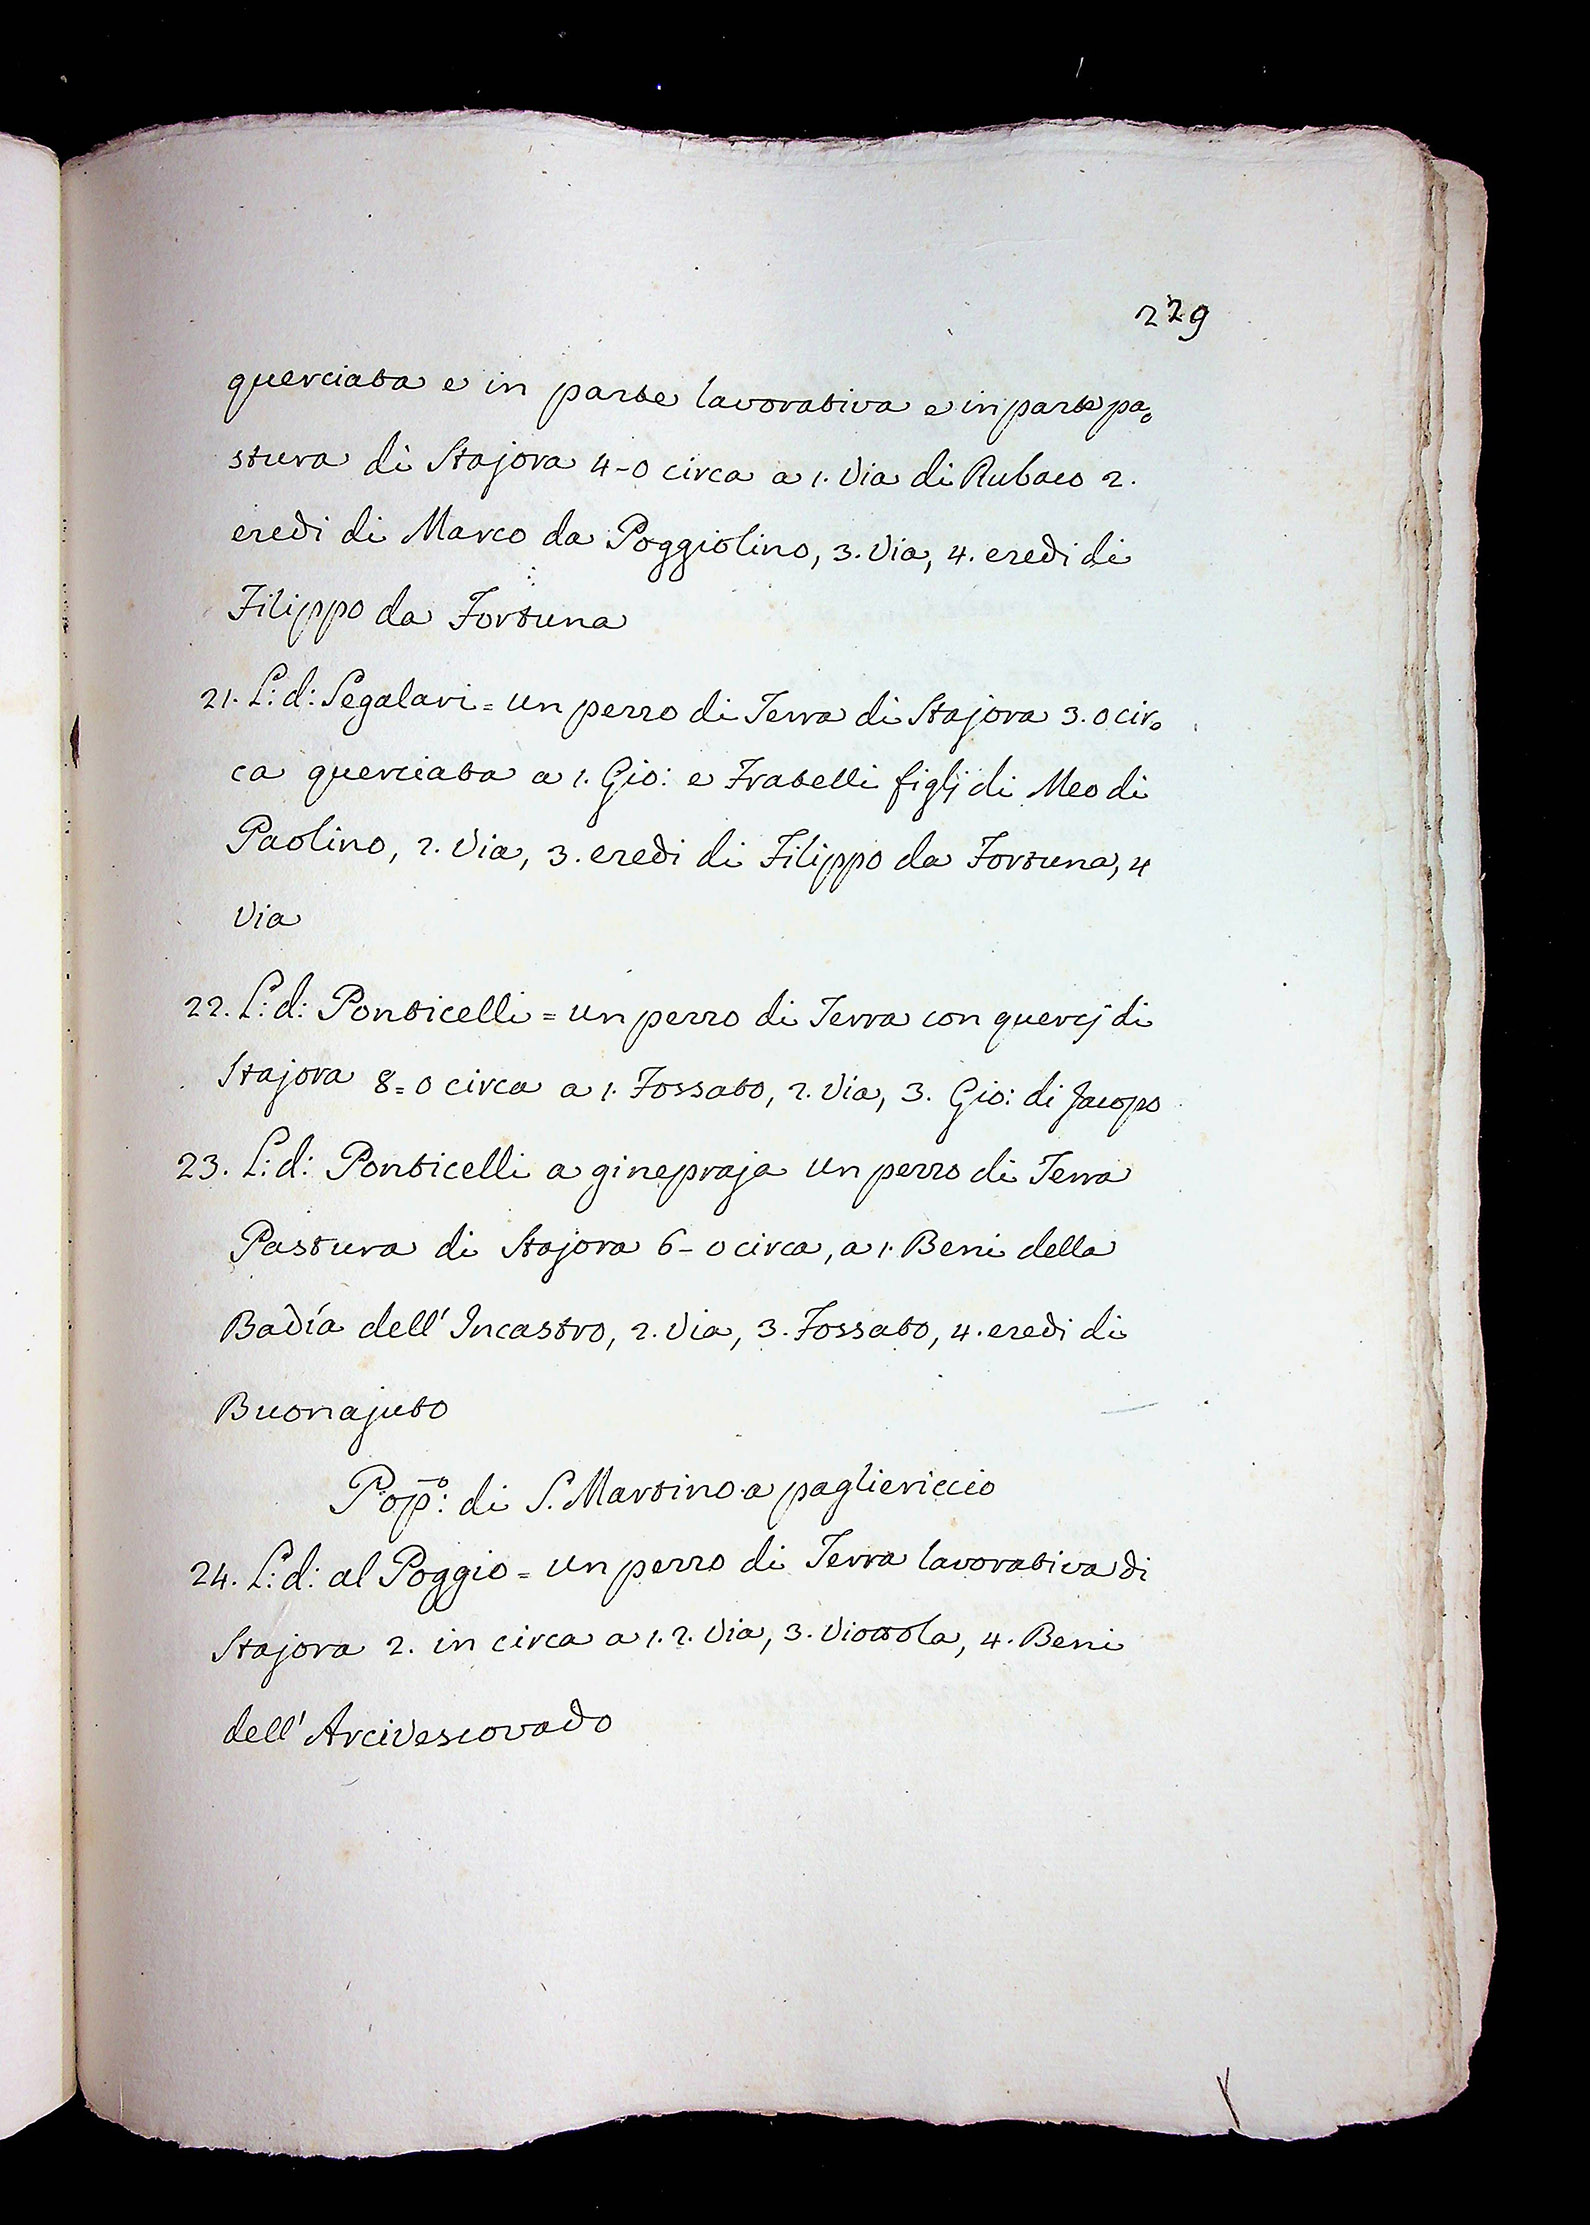 229
querciata e in parte lavorativa e in parte pa=
stura di Stajora 4-0 circa a 1. Via di Rubaco 2.
eredi di Marco da Poggiolino, 3. Via, 4. eredi di
Filippo da Fortuna
21. L: d: Segalari = un pezzo di Terra di Stajora 3. 0 cir=
ca querciata a 1. Gio: e Fratelli figlj di Meo di
Paolino, 2. Via, 3. eredi di Filippo da Fortuna, 4
Via
22. L: d: Ponticelli = un pezzo di Terra con quercj di
Stajora 8=0 circa a 1. Fossato, 2. Via, 3. Gio: di Jacopo
23. L: d: Ponticelli a ginepraja un pezzo di Terra
Pastura di Stajora 6-0 circa, a 1. Beni della
Badía dell' Incastro, 2. Via, 3. Fossato, 4. eredi di
Buonajuto
Pop̄o: di S. Martino a pagliericcio
24. L: d: al Poggio = un pezzo di Terra lavorativa di
Stajora 2. in circa a 1. 2. Via, 3. Viottola, 4. Beni
dell' Arcivescovado